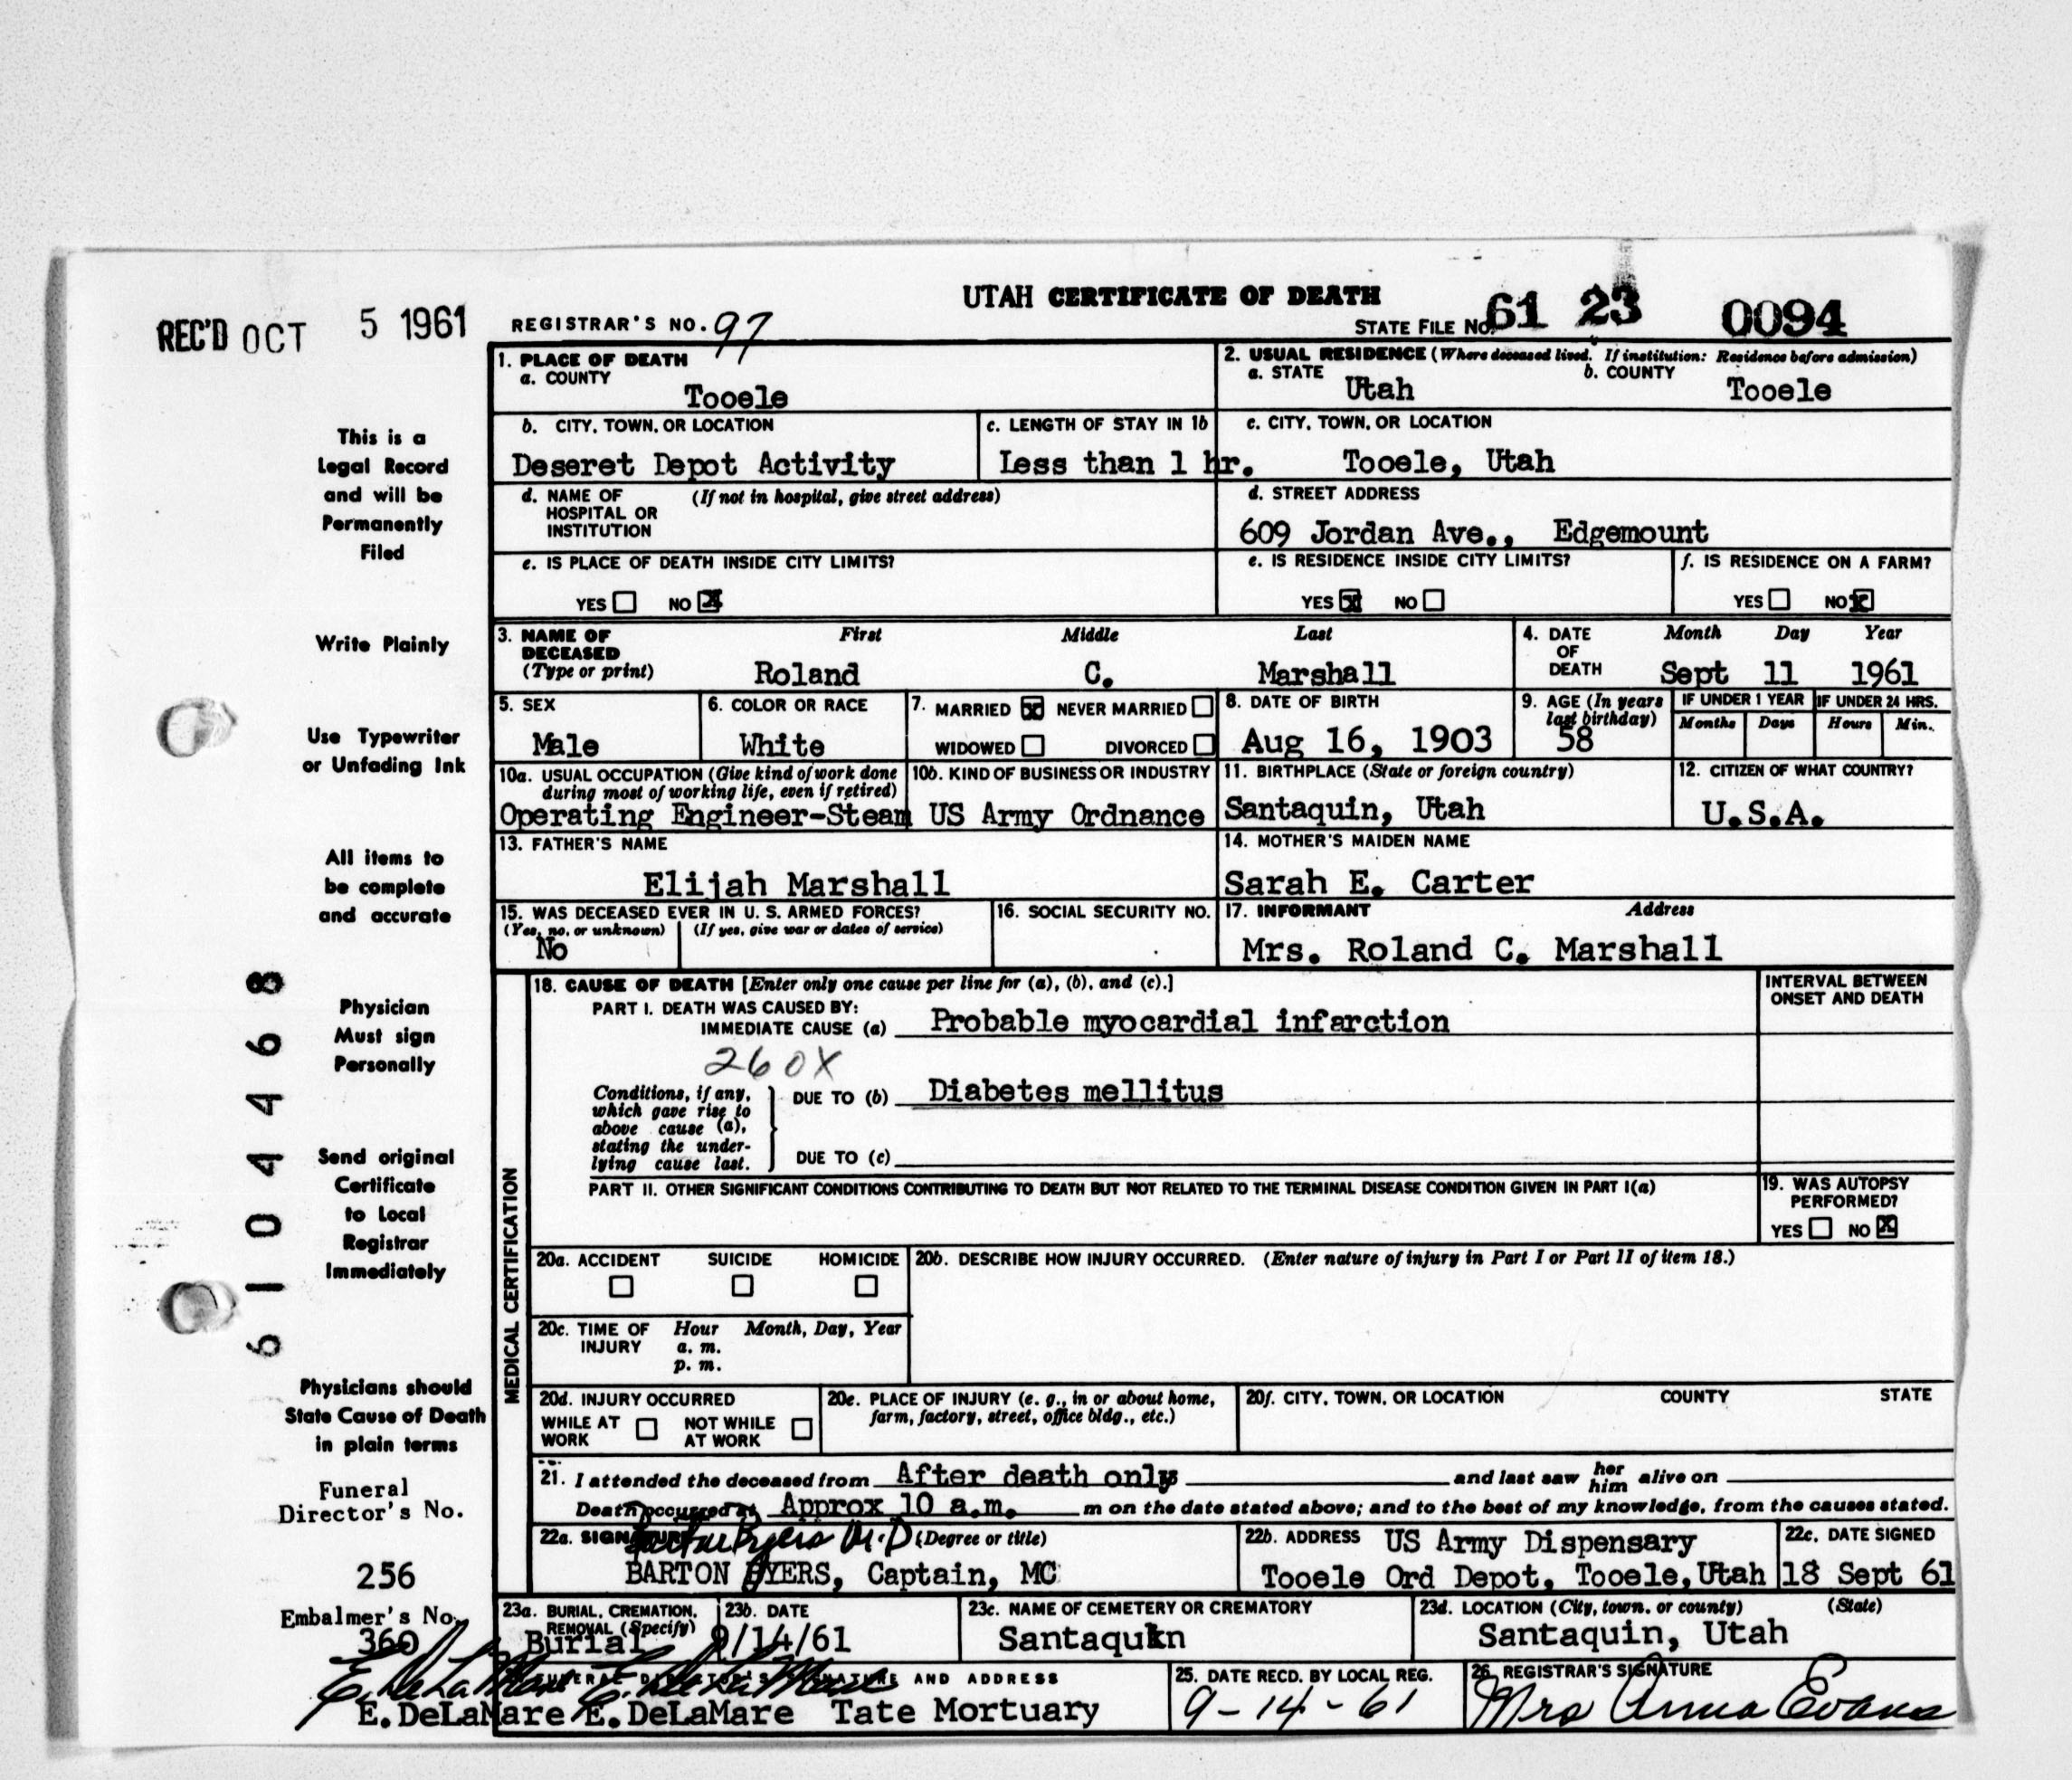 UTAH CERTIFICATE OF DEATH
REC'D OCT 5 1961
REGISTRAR'S NO. 97
STATE FILE NO. 61 23 0094
1. PLACE OF DEATH
a. COUNTY
Tooele
2. USUAL RESIDENCE (Where deceased lived. If institution: Residence before admission)
a. STATE b. COUNTY
Utah Tooele
b. CITY, TOWN, OR LOCATION
Deseret Depot Activity
c. LENGTH OF STAY IN 1b
Less than 1 hr.
c. CITY, TOWN, OR LOCATION
Tooele, Utah
d. NAME OF (If not in hospital, give street address)
HOSPITAL OR
INSTITUTION
d. STREET ADDRESS
609 Jordan Ave., Edgemount
e. IS PLACE OF DEATH INSIDE CITY LIMITS?
YES NO X
e. IS RESIDENCE INSIDE CITY LIMITS?
YES X NO
f. IS RESIDENCE ON A FARM?
YES NO X
3. NAME OF First Middle Last
DECEASED
(Type or print) Roland C. Marshall
4. DATE Month Day Year
OF
DEATH Sept 11 1961
5. SEX
Male
6. COLOR OR RACE
White
7. MARRIED X NEVER MARRIED
WIDOWED DIVORCED
8. DATE OF BIRTH
Aug 16, 1903
9. AGE (In years
last birthday)
58
IF UNDER 1 YEAR
Months Days
IF UNDER 24 HRS.
Hours Min.
10a. USUAL OCCUPATION (Give kind of work done
during most of working life, even if retired)
Operating Engineer-Steam
10b. KIND OF BUSINESS OR INDUSTRY
US Army Ordnance
11. BIRTHPLACE (State or foreign country)
Santaquin, Utah
12. CITIZEN OF WHAT COUNTRY?
U.S.A.
13. FATHER'S NAME
Elijah Marshall
14. MOTHER'S MAIDEN NAME
Sarah E. Carter
15. WAS DECEASED EVER IN U. S. ARMED FORCES?
(Yes, no, or unknown) (If yes, give war or dates of service)
No
16. SOCIAL SECURITY NO.
17. INFORMANT Address
Mrs. Roland C. Marshall
MEDICAL CERTIFICATION
18. CAUSE OF DEATH [Enter only one cause per line for (a), (b), and (c).]
PART I. DEATH WAS CAUSED BY:
IMMEDIATE CAUSE (a) Probable myocardial infarction
INTERVAL BETWEEN
ONSET AND DEATH
260X
Conditions, if any,
which gave rise to
above cause (a),
stating the under-
lying cause last.
DUE TO (b) Diabetes mellitus
DUE TO (c)
PART II. OTHER SIGNIFICANT CONDITIONS CONTRIBUTING TO DEATH BUT NOT RELATED TO THE TERMINAL DISEASE CONDITION GIVEN IN PART I(a)
19. WAS AUTOPSY
PERFORMED?
YES NO X
20a. ACCIDENT SUICIDE HOMICIDE
20b. DESCRIBE HOW INJURY OCCURRED. (Enter nature of injury in Part I or Part II of item 18.)
20c. TIME OF Hour Month, Day, Year
INJURY a. m.
p. m.
20d. INJURY OCCURRED
WHILE AT NOT WHILE
WORK AT WORK
20e. PLACE OF INJURY (e. g., in or about home,
farm, factory, street, office bldg., etc.)
20f. CITY, TOWN, OR LOCATION COUNTY STATE
21. I attended the deceased from After death only and last saw her him alive on
Death occurred at Approx 10 a.m. m on the date stated above; and to the best of my knowledge, from the causes stated.
22a. SIGNATURE Barton Byers M.D (Degree or title)
BARTON BYERS, Captain, MC
22b. ADDRESS US Army Dispensary
Tooele Ord Depot, Tooele, Utah
22c. DATE SIGNED
18 Sept 61
23a. BURIAL, CREMATION,
REMOVAL (Specify)
Burial
23b. DATE
9/14/61
23c. NAME OF CEMETERY OR CREMATORY
Santaquin
23d. LOCATION (City, town, or county) (State)
Santaquin, Utah
FUNERAL DIRECTOR'S SIGNATURE AND ADDRESS
E. DeLaMare E. DeLaMare
E.DeLaMare E.DeLaMare Tate Mortuary
25. DATE RECD. BY LOCAL REG.
9-14-61
26. REGISTRAR'S SIGNATURE
Mrs Anna Evans
This is a
Legal Record
and will be
Permanently
Filed
Write Plainly
Use Typewriter
or Unfading Ink
All items to
be complete
and accurate
Physician
Must sign
Personally
Send original
Certificate
to Local
Registrar
Immediately
Physicians should
State Cause of Death
in plain terms
Funeral
Director's No.
256
Embalmer's No.
360
6104468